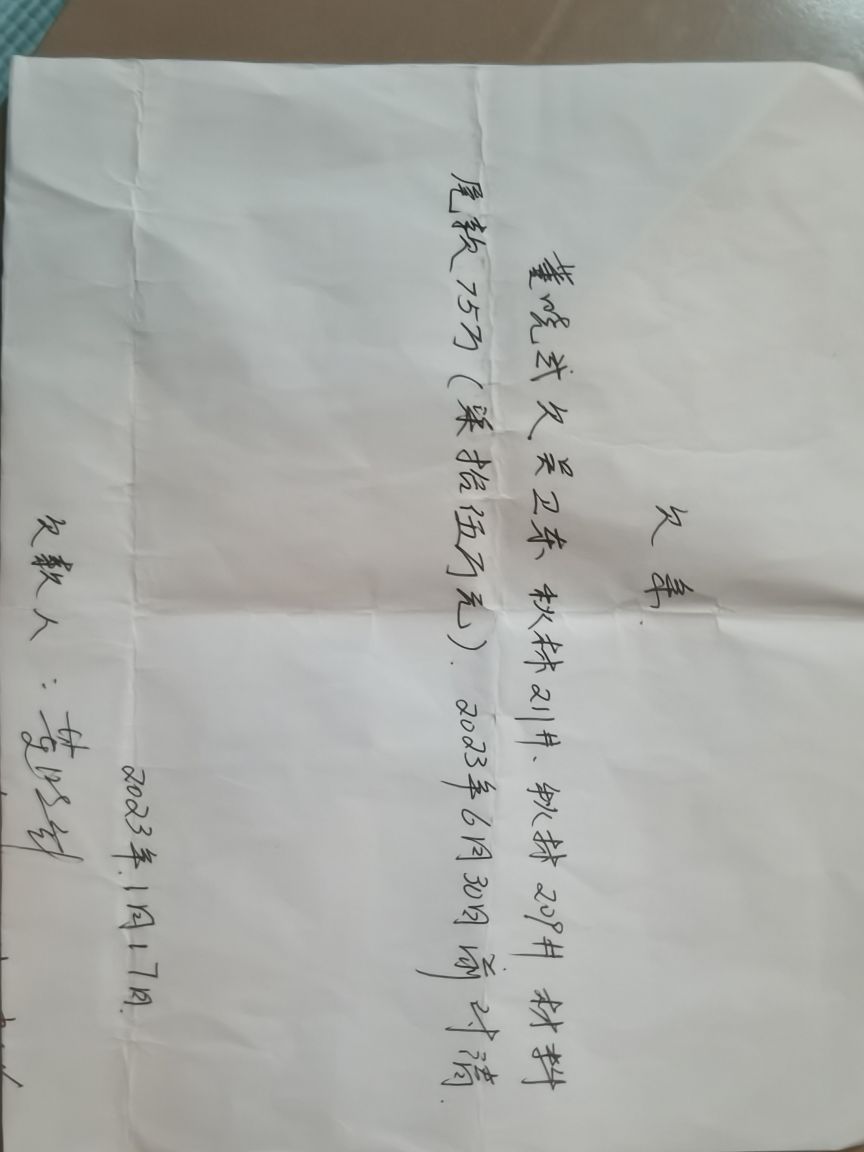 欠条.
董晓武欠吴卫东 秋林211井、秋林209井材料
尾款75万(柒拾伍万元). 2023年6月30日前付清.
2023年1月17日.
欠款人: